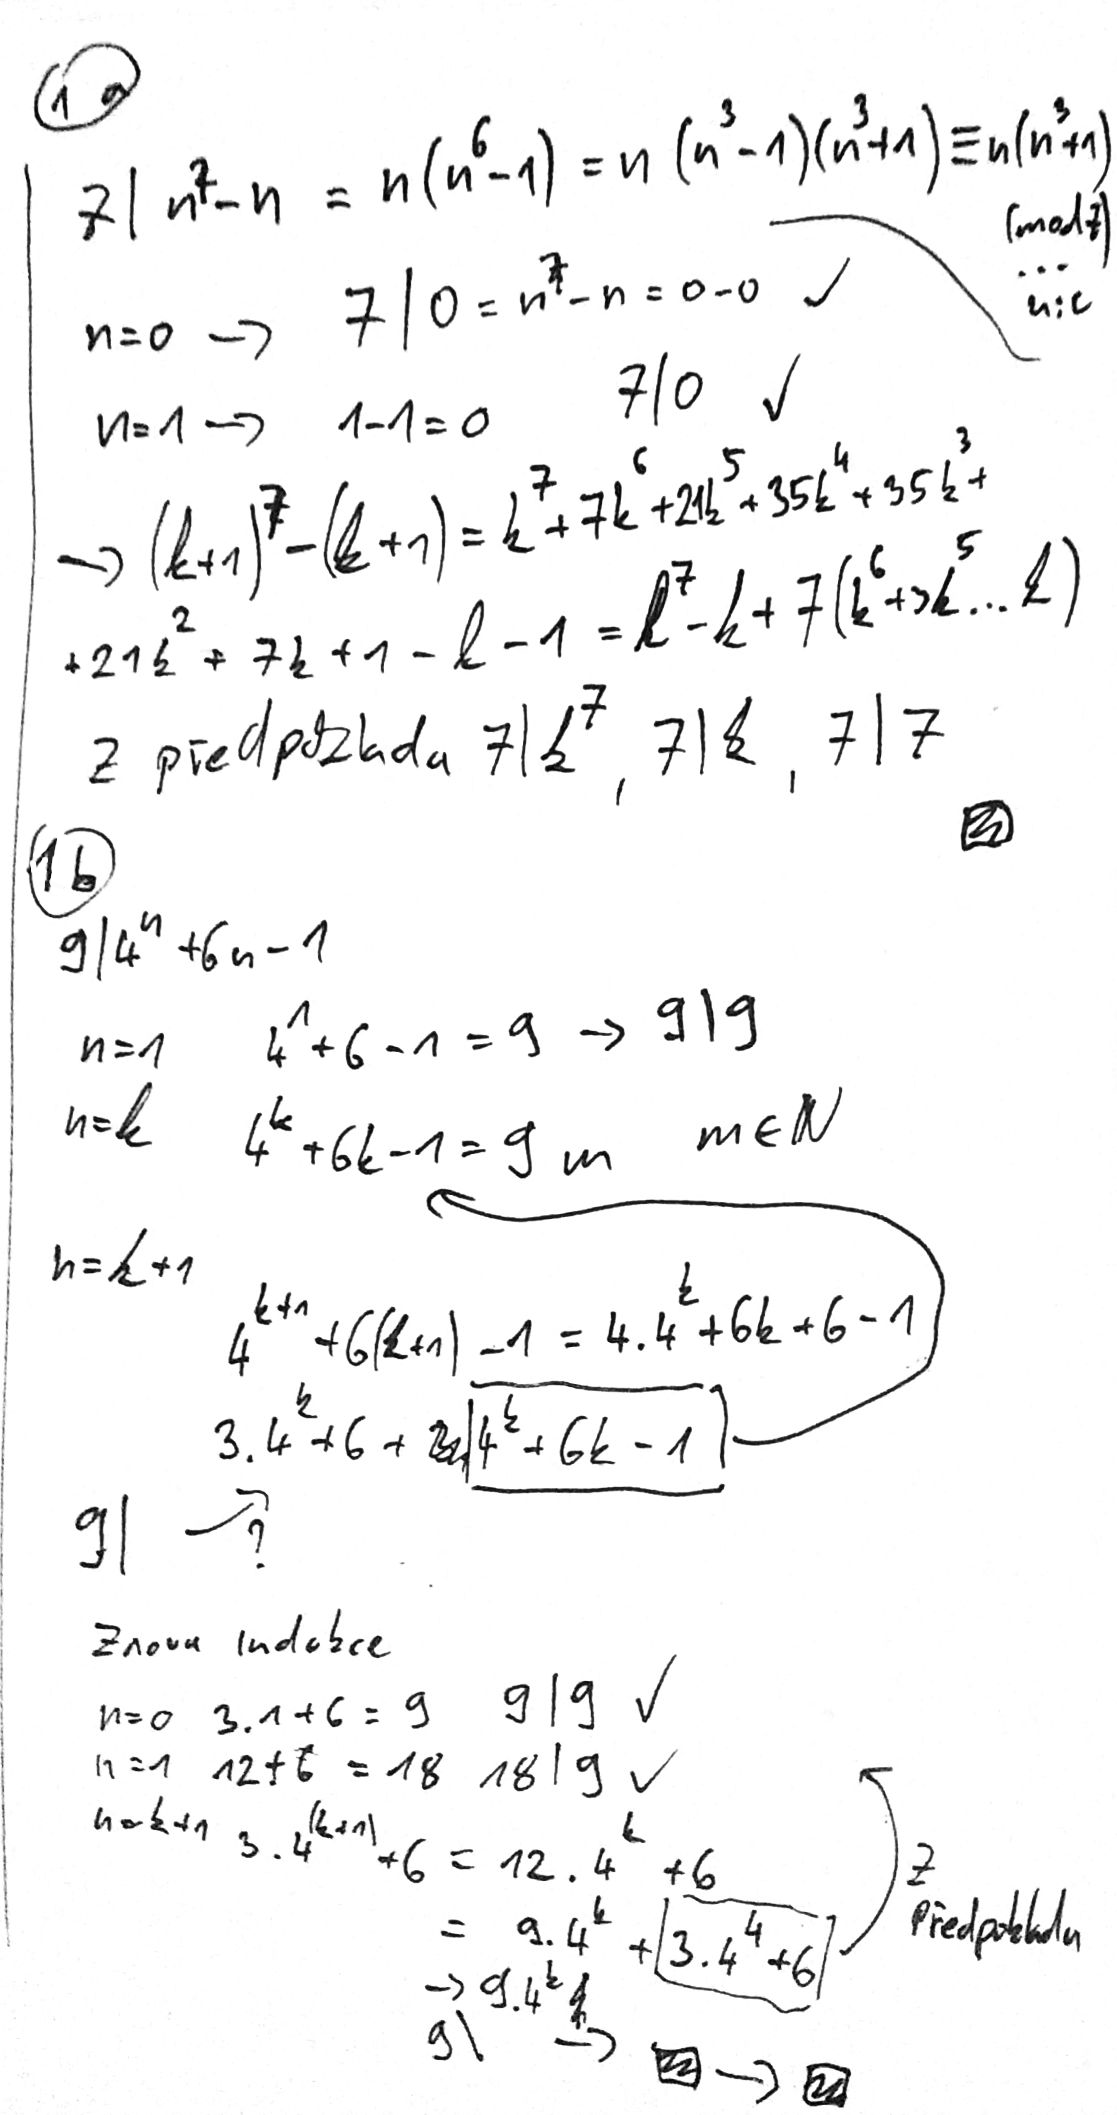 1a
7 | n⁷-n = n(n⁶-1) = n(n³-1)(n³+1) ≡ n(n³+1)
(mod 7)
...
nic
n=0 → 7|0 = n⁷-n = 0-0 ✓
n=1 → 1-1=0 7|0 ✓
→ (k+1)⁷-(k+1) = k⁷+7k⁶+21k⁵+35k⁴+35k³+
+21k²+7k+1-k-1 = k⁷-k+7(k⁶+3k⁵...k)
Z předpokladu 7|k⁷, 7|k, 7|7
1b
9|4ⁿ+6n-1
n=1 4¹+6-1=9 → 9|9
n=k 4ᵏ+6k-1=9m m∈N
n=k+1
4ᵏ⁺¹+6(k+1)-1 = 4.4ᵏ+6k+6-1
3.4ᵏ+6+ 4ᵏ+6k-1
9| → ?
Znova indukce
n=0 3.1+6=9 9|9 ✓
n=1 12+6=18 18|9 ✓
n=k+1 3.4⁽ᵏ⁺¹⁾+6 = 12.4ᵏ+6
= 9.4ᵏ + 3.4⁴+6
Z
předpokladu
→ 9.4ᵏ
9\ → →